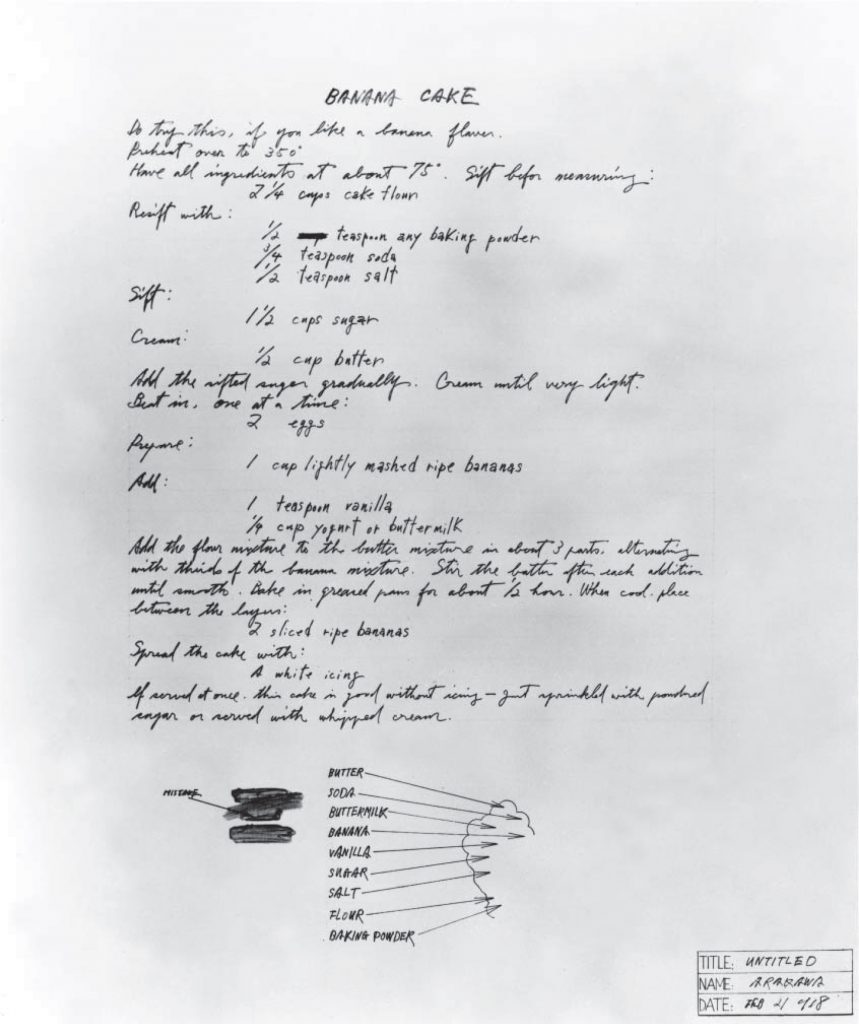 BANANA CAKE
Do try this, if you like a banana flavor.
Preheat oven to 350°
Have all ingredients at about 75°. Sift befor measuring:
2 1/4 cups cake flour
Resift with:
1/2 teaspoon any baking powder
3/4 teaspoon soda
1/2 teaspoon salt
Sift:
1 1/2 cups sugar
Cream:
1/2 cup butter
Add the sifted sugar gradually. Cream until very light.
Beat in, one at a time:
2 eggs
Prepare:
1 cup lightly mashed ripe bananas
Add:
1 teaspoon vanilla
1/4 cup yogurt or buttermilk
Add the flour mixture to the butter mixture in about 3 parts, alternating
with thirds of the banana mixture. Stir the batter after each addition
until smooth. Bake in greased pans for about 1/2 hour. When cool. place
between the layers:
2 sliced ripe bananas
Spread the cake with:
A white icing
If served at once. this cake is good without icing — just sprinkled with powdred
sugar or served with whipped cream.
MISTAKE
BUTTER
SODA
BUTTERMILK
BANANA
VANILLA
SUGAR
SALT
FLOUR
BAKING POWDER
TITLE: UNTITLED
NAME: ARAKAWA
DATE: FEB 21